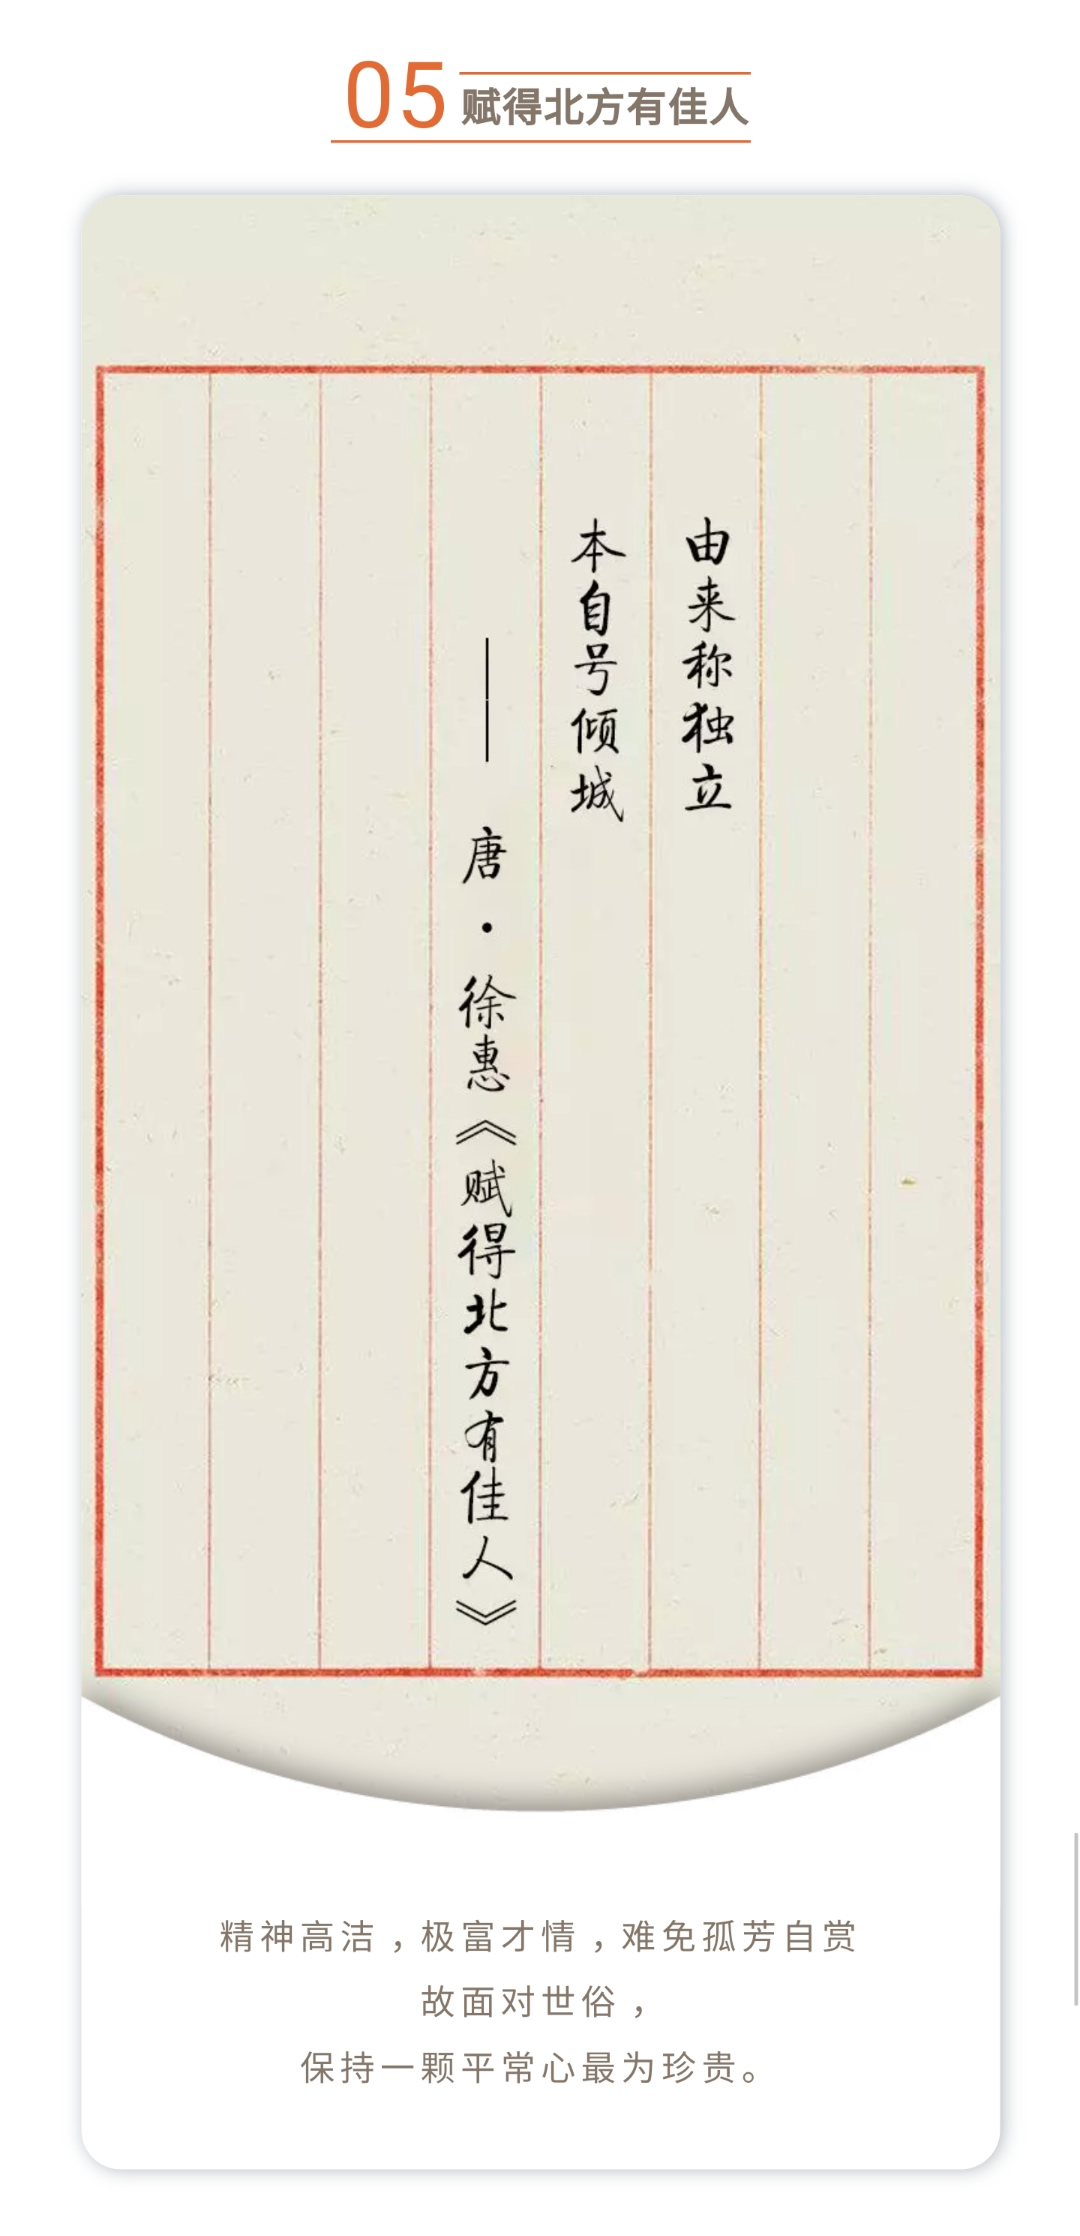 05 赋得北方有佳人
由来称独立
本自号倾城
——唐·徐惠《赋得北方有佳人》
精神高洁，极富才情，难免孤芳自赏
故面对世俗，
保持一颗平常心最为珍贵。